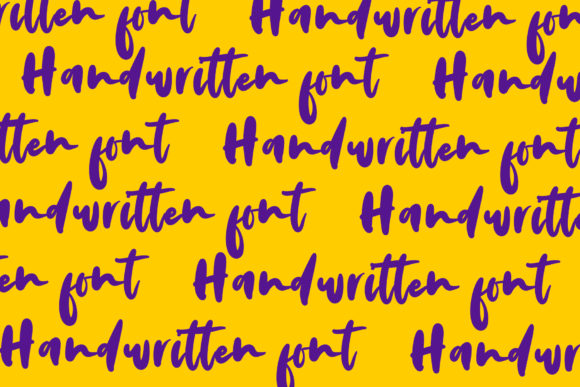 ritten font Handwritten fon
Handwritten font Handw
tten font Handwritten font
andwritten font Handwritte
en font Handwritten font
Handwritten font Handwr